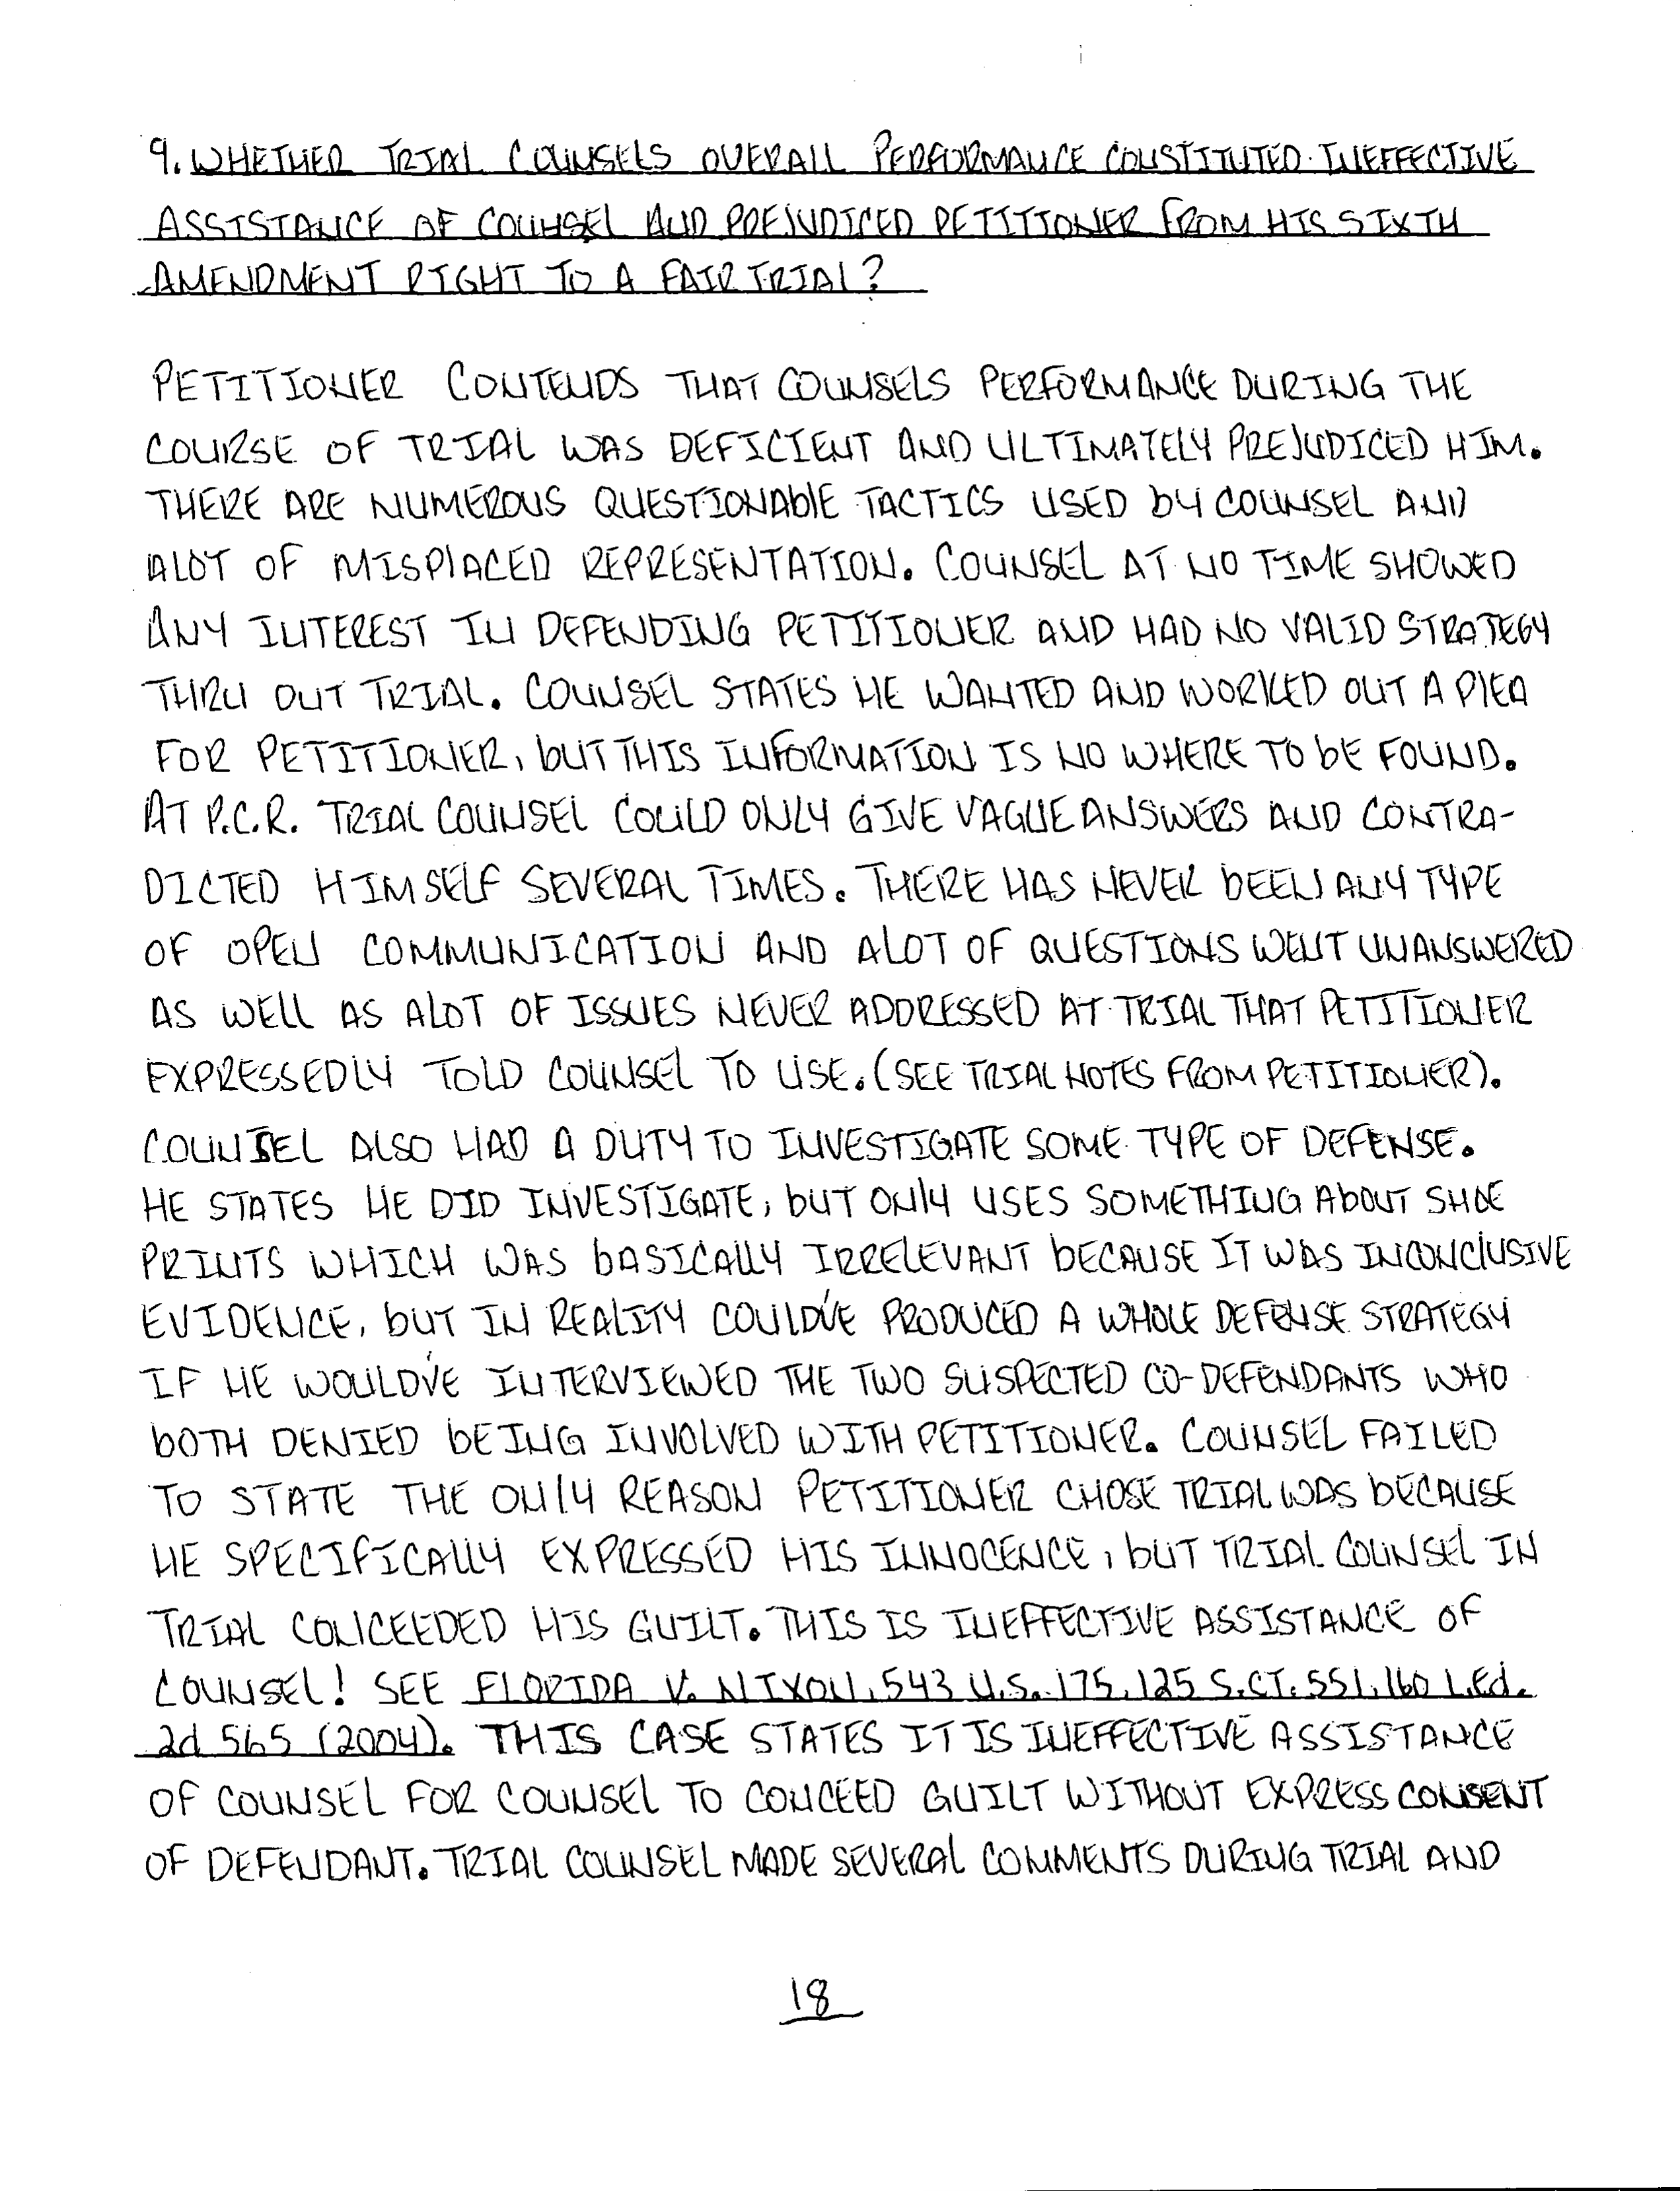 9. WHETHER TRIAL COUNSELS OVERALL PERFORMANCE CONSTITUTED INEFFECTIVE
ASSISTANCE OF COUNSEL AND PREJUDICED PETITIONER FROM HIS SIXTH
AMENDMENT RIGHT TO A FAIR TRIAL?
PETITIONER CONTENDS THAT COUNSELS PERFORMANCE DURING THE
COURSE OF TRIAL WAS DEFICIENT AND ULTIMATELY PREJUDICED HIM.
THERE ARE NUMEROUS QUESTIONABLE TACTICS USED BY COUNSEL AND
ALOT OF MISPLACED REPRESENTATION. COUNSEL AT NO TIME SHOWED
ANY INTEREST IN DEFENDING PETITIONER AND HAD NO VALID STRATEGY
THRU OUT TRIAL. COUNSEL STATES HE WANTED AND WORKED OUT A PLEA
FOR PETITIONER, BUT THIS INFORMATION IS NO WHERE TO BE FOUND.
AT P.C.R. TRIAL COUNSEL COULD ONLY GIVE VAGUE ANSWERS AND CONTRA-
DICTED HIMSELF SEVERAL TIMES. THERE HAS NEVER BEEN ANY TYPE
OF OPEN COMMUNICATION AND ALOT OF QUESTIONS WENT UNANSWERED
AS WELL AS ALOT OF ISSUES NEVER ADDRESSED AT TRIAL THAT PETITIONER
EXPRESSEDLY TOLD COUNSEL TO USE. (SEE TRIAL NOTES FROM PETITIONER).
COUNSEL ALSO HAD A DUTY TO INVESTIGATE SOME TYPE OF DEFENSE.
HE STATES HE DID INVESTIGATE, BUT ONLY USES SOMETHING ABOUT SHOE
PRINTS WHICH WAS BASICALLY IRRELEVANT BECAUSE IT WAS INCONCLUSIVE
EVIDENCE, BUT IN REALITY COULD'VE PRODUCED A WHOLE DEFENSE STRATEGY
IF HE WOULD'VE INTERVIEWED THE TWO SUSPECTED CO-DEFENDANTS WHO
BOTH DENIED BEING INVOLVED WITH PETITIONER. COUNSEL FAILED
TO STATE THE ONLY REASON PETITIONER CHOSE TRIAL WAS BECAUSE
HE SPECIFICALLY EXPRESSED HIS INNOCENCE, BUT TRIAL COUNSEL IN
TRIAL CONCEEDED HIS GUILT. THIS IS INEFFECTIVE ASSISTANCE OF
COUNSEL! SEE FLORIDA V. NIXON, 543 U.S. 175, 125 S.CT. 551, 160 L.Ed.
2d 565 (2004). THIS CASE STATES IT IS INEFFECTIVE ASSISTANCE
OF COUNSEL FOR COUNSEL TO CONCEED GUILT WITHOUT EXPRESS CONSENT
OF DEFENDANT. TRIAL COUNSEL MADE SEVERAL COMMENTS DURING TRIAL AND
18